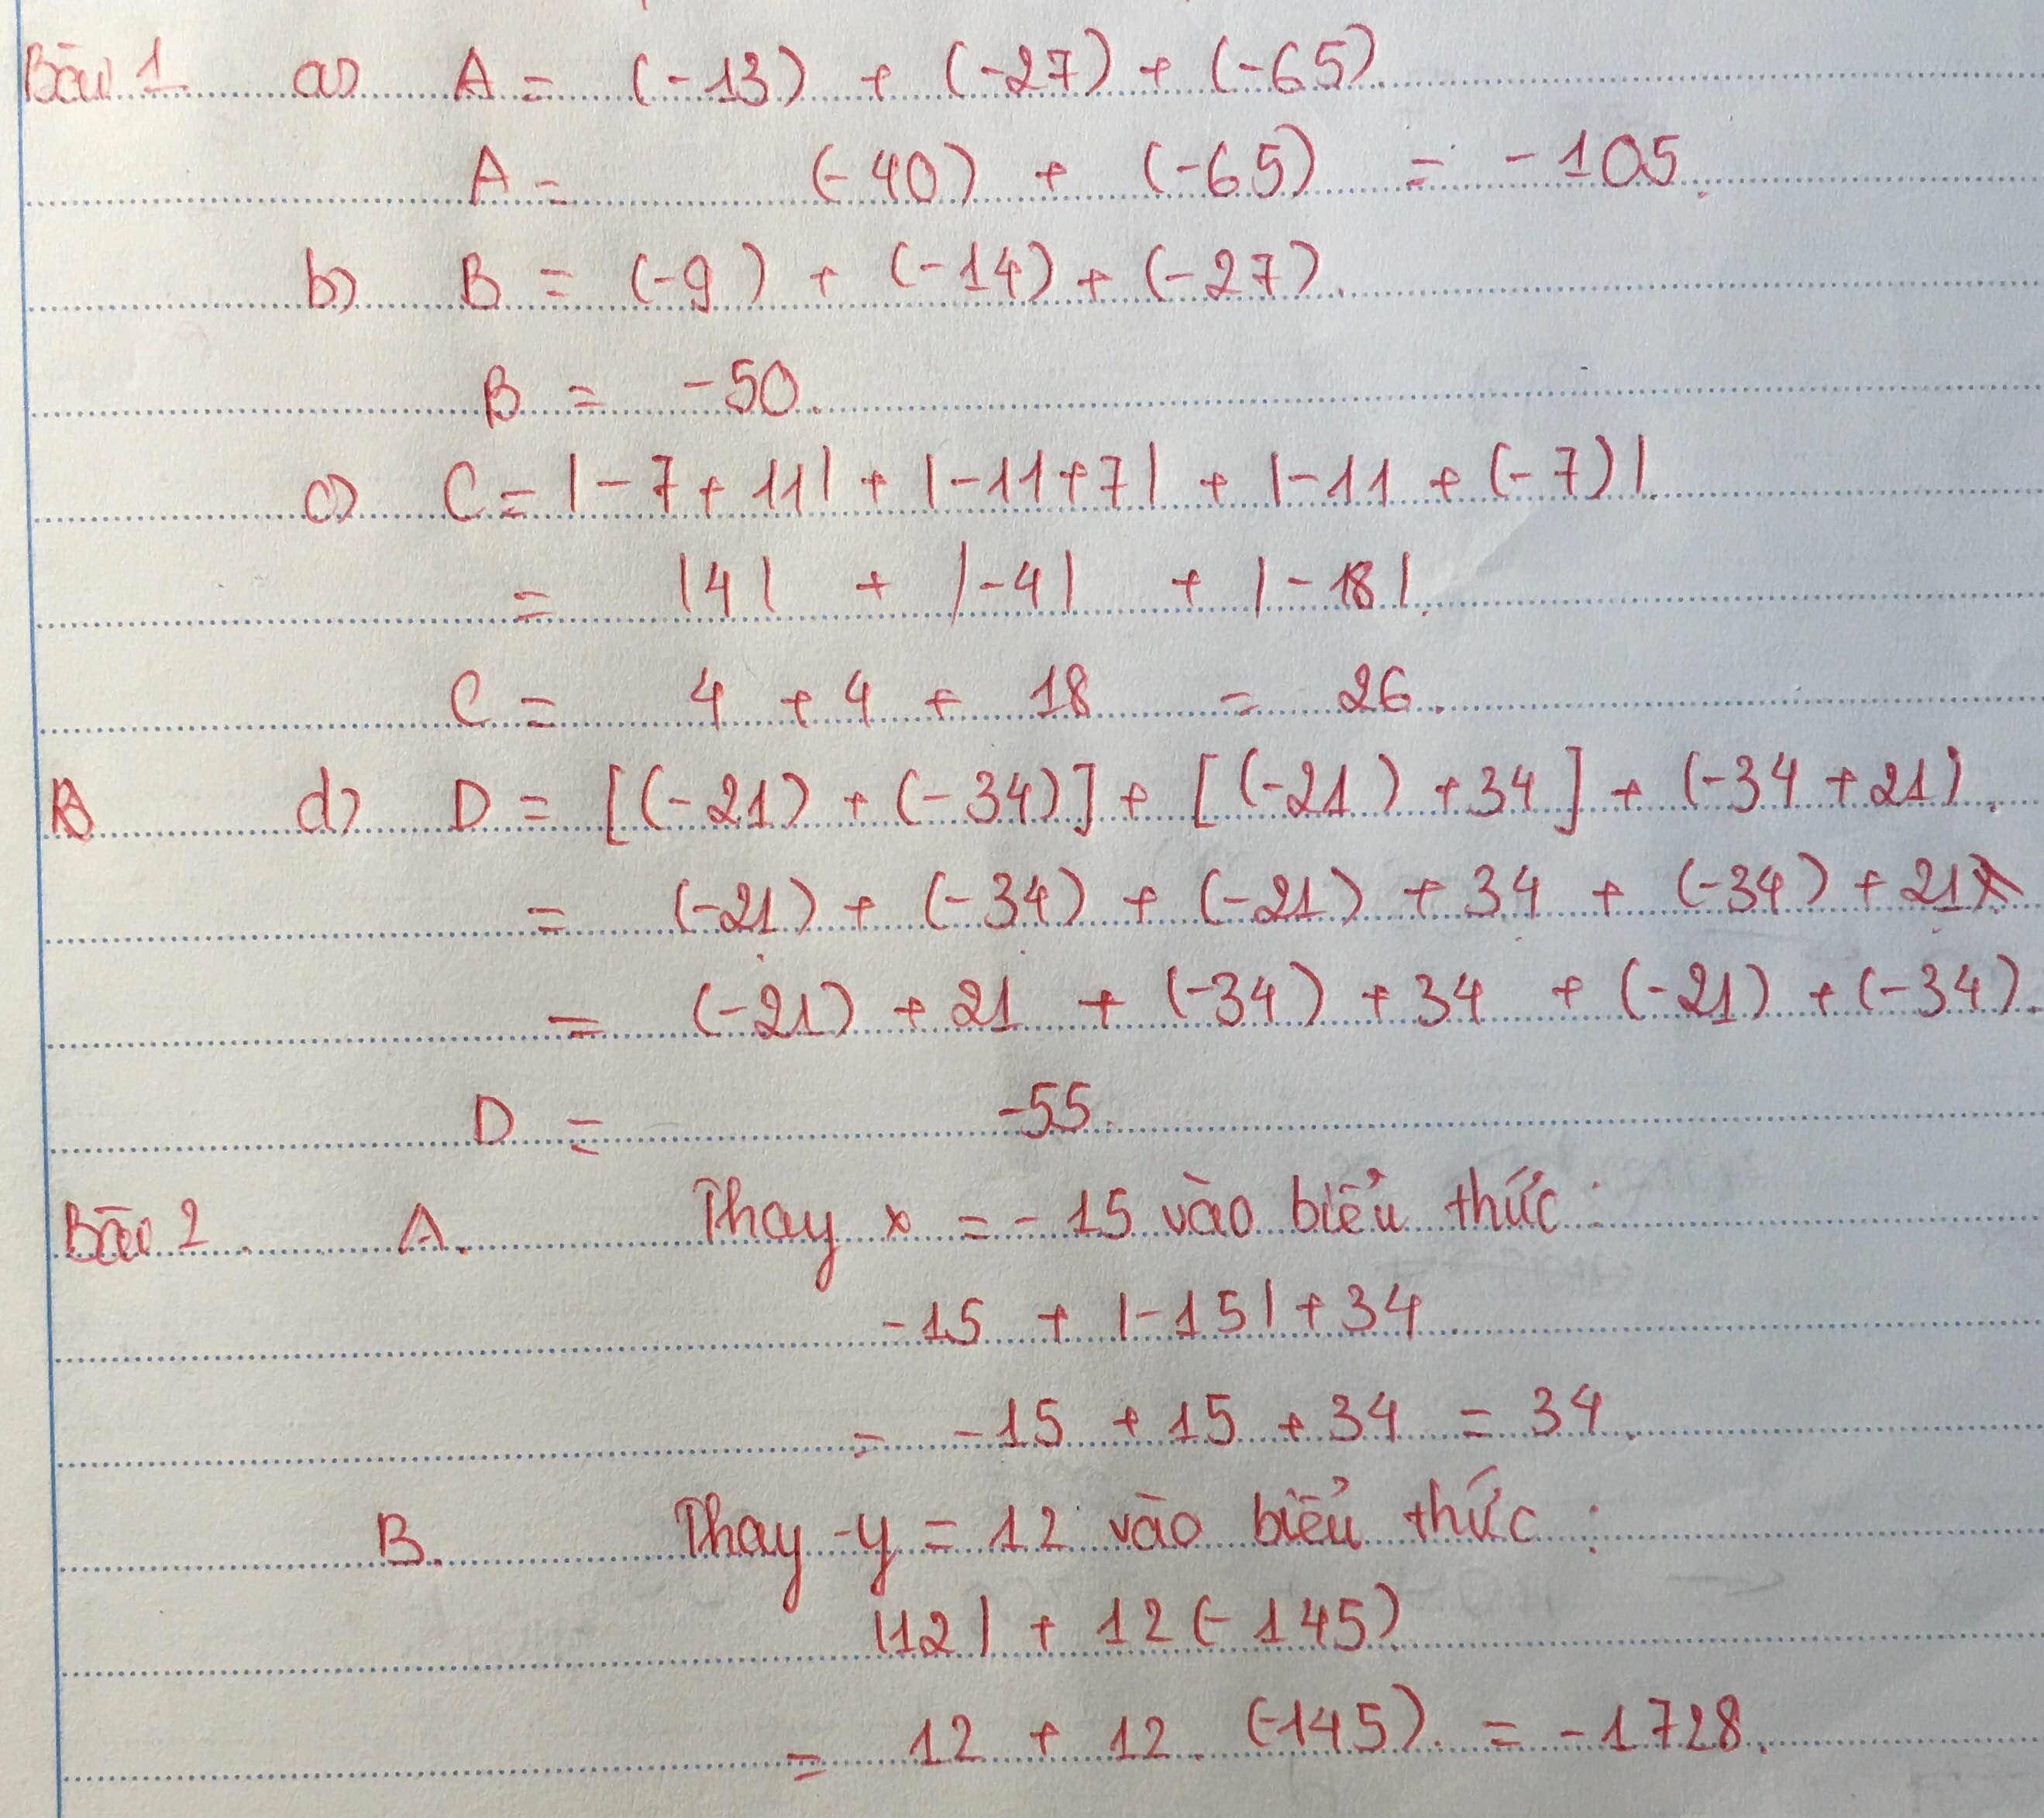 Bài 1 a) A = (-13) + (-27) + (-65).
A = (-40) + (-65) = -105.
b) B = (-9) + (-14) + (-27).
B = -50.
c) C = |-7 + 11| + |-11+7| + |-11 + (-7)|.
= |4| + |-4| + |-18|.
C = 4 + 4 + 18 = 26.
d) D = [(-21) + (-34)] + [(-21) + 34] + (-34 + 21).
= (-21) + (-34) + (-21) + 34 + (-34) + 21
= (-21) + 21 + (-34) + 34 + (-21) + (-34).
D = -55.
Bài 2. A. Thay x = -15 vào biểu thức :
-15 + |-15| + 34.
= -15 + 15 + 34 = 34.
B. Thay -y = 12 vào biểu thức :
|12| + 12(-145)
= 12 + 12. (-145). = -1728.